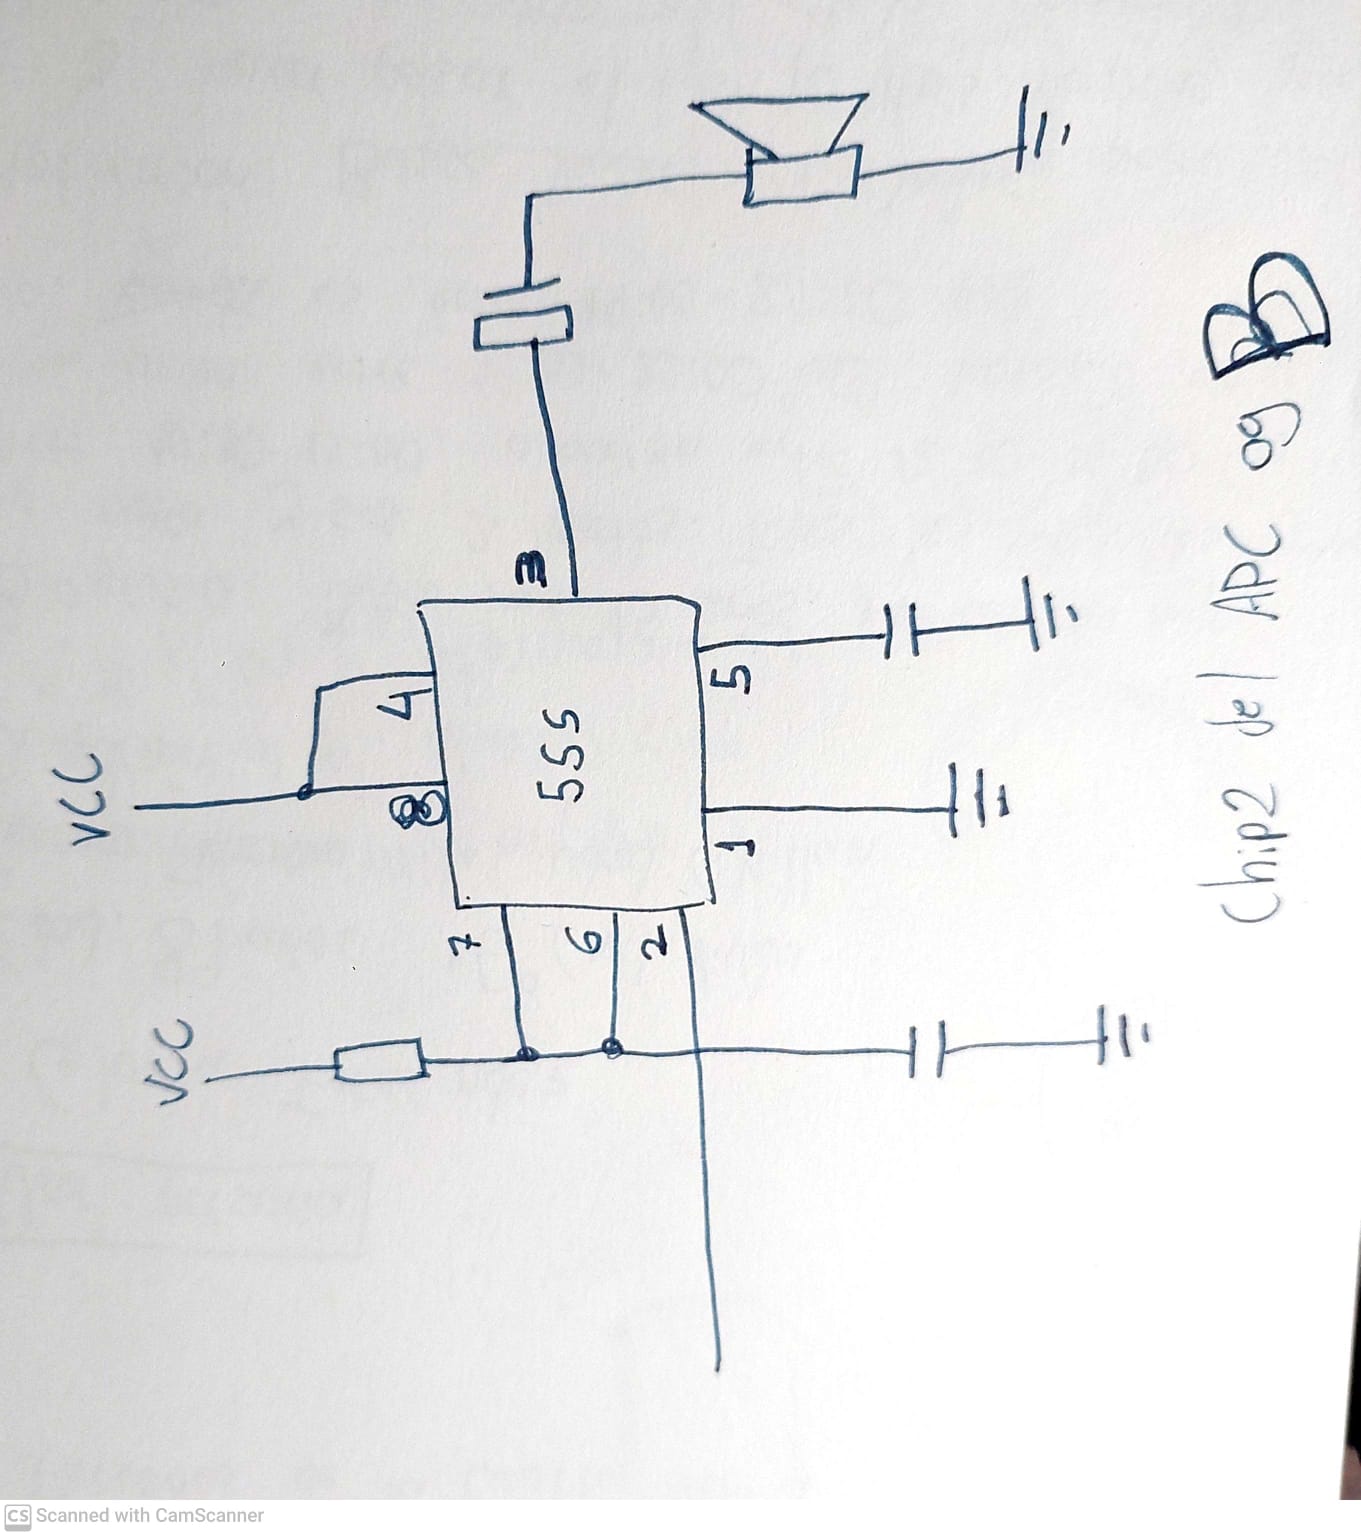 CS Scanned with CamScanner
VCC
VCC
8
4
7
555
3
6
2
1
5
Chip2 del APC og B